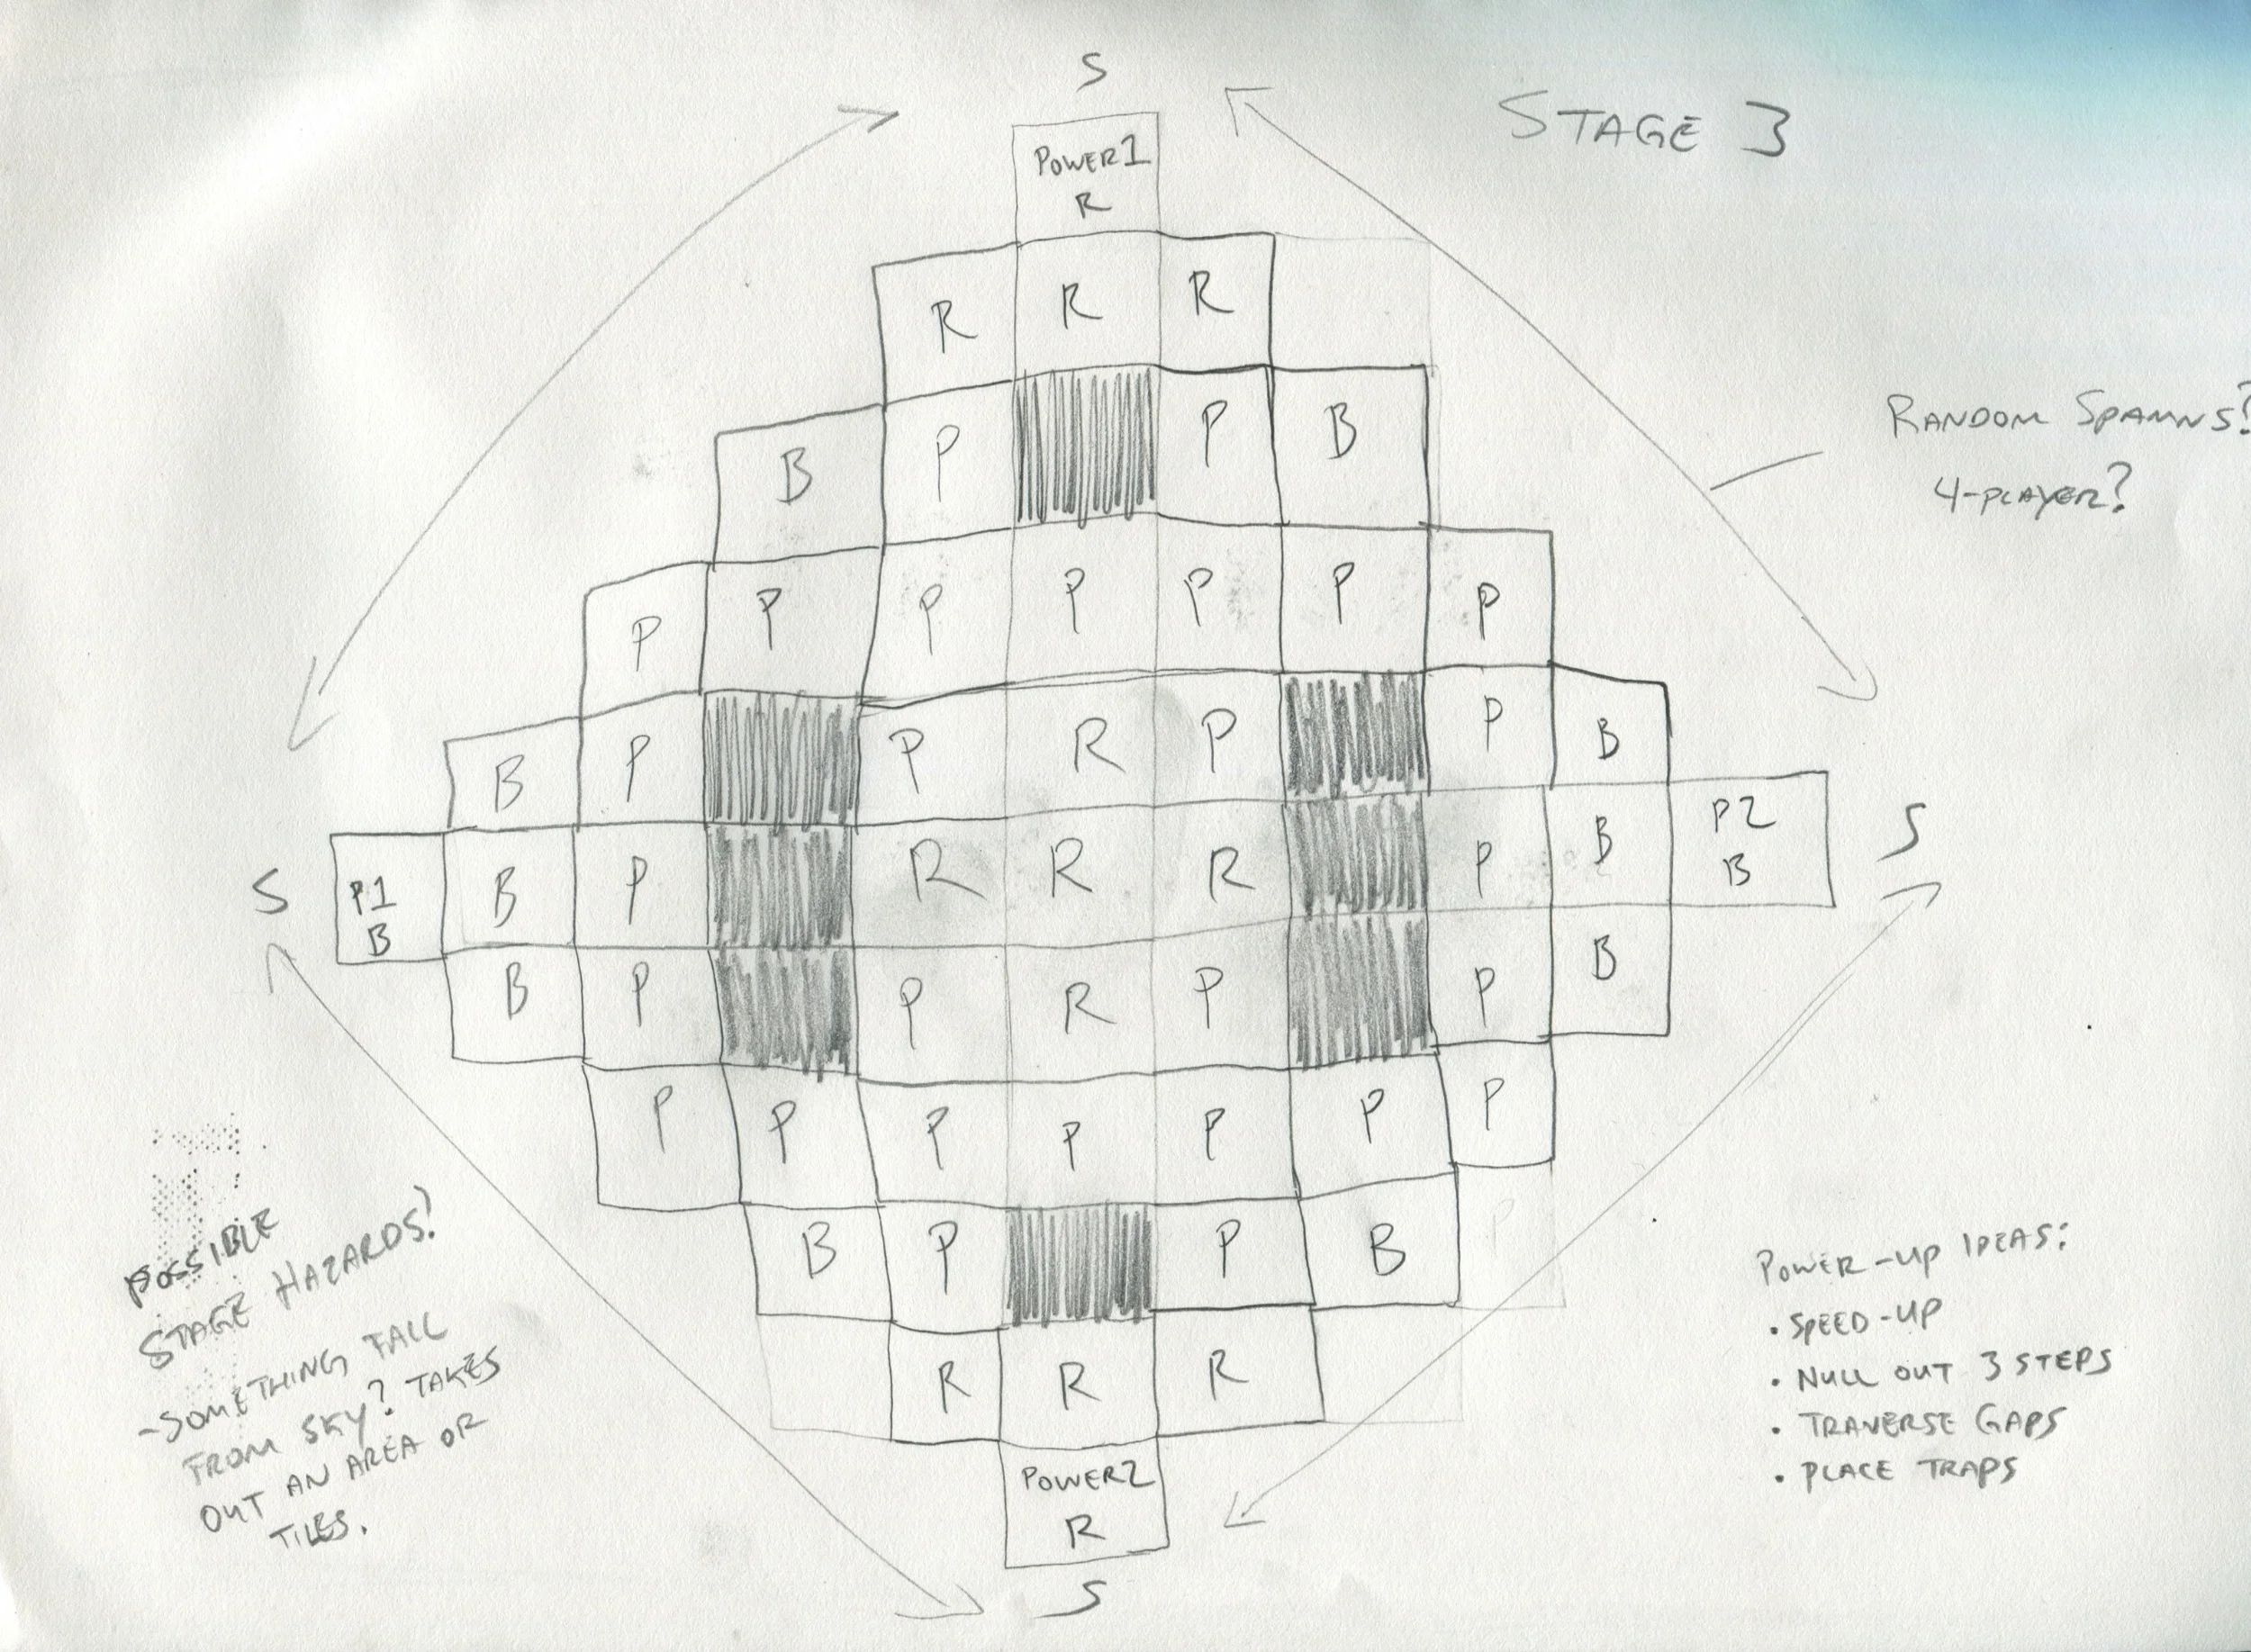 S
STAGE 3
POWER 1
R
R R R
B P P B
P P P P P P P
B P P R P P B
P1
B
B P R R R P B
P2
B
S
S
B P P R P P B
P P P P P P P
B P P B
P
R R R
POWER 2
R
S
RANDOM SPAWNS?
4-PLAYER?
POSSIBLE
STAGE HAZARDS!
-SOMETHING FALL
FROM SKY? TAKES
OUT AN AREA OR
TILES.
POWER-UP IDEAS:
• SPEED-UP
• NULL OUT 3 STEPS
• TRAVERSE GAPS
• PLACE TRAPS